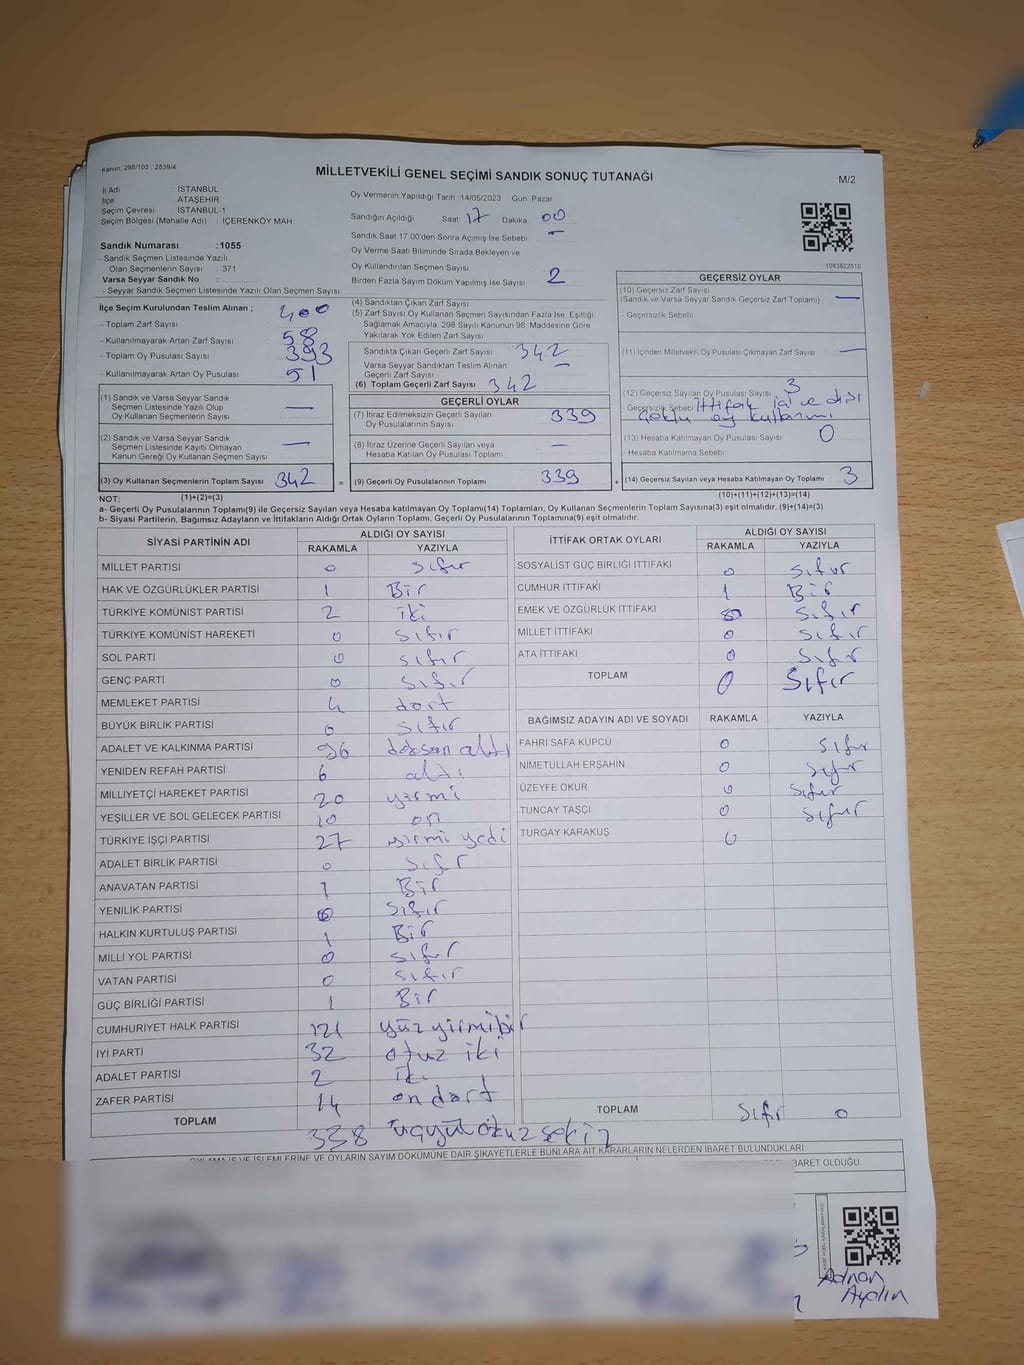 Kanun: 298/105 ; 2839/4
MİLLETVEKİLİ GENEL SEÇİMİ SANDIK SONUÇ TUTANAĞI
M/2
İl Adı : İSTANBUL
İlçe : ATAŞEHİR
Seçim Çevresi : İSTANBUL-1
Seçim Bölgesi (Mahalle Adı) : İÇERENKÖY MAH.
Sandık Numarası :1055
- Sandık Seçmen Listesinde Yazılı
Olan Seçmenlerin Sayısı : 371
Varsa Seyyar Sandık No :
- Seyyar Sandık Seçmen Listesinde Yazılı Olan Seçmen Sayısı:
Oy Vermenin Yapıldığı Tarih :14/05/2023 Gün: Pazar
Sandığın Açıldığı Saat: 17 Dakika: 00
Sandık Saat 17:00'den Sonra Açımış İse Sebebi : —
Oy Verme Saati Bitiminde Sırada Bekleyen ve
Oy Kullandırılan Seçmen Sayısı
Birden Fazla Sayım Döküm Yapılmış İse Sayısı : 2
1083822510
İlçe Seçim Kurulundan Teslim Alınan ;
- Toplam Zarf Sayısı 400
- Kullanılmayarak Artan Zarf Sayısı 58
- Toplam Oy Pusulası Sayısı 393
- Kullanılmayarak Artan Oy Pusulası 51
(1) Sandık ve Varsa Seyyar Sandık
Seçmen Listesinde Yazılı Olup
Oy Kullanan Seçmenlerin Sayısı —
(2) Sandık ve Varsa Seyyar Sandık
Seçmen Listesinde Kayıtlı Olmayan
Kanun Gereği Oy Kullanan Seçmen Sayısı —
(3) Oy Kullanan Seçmenlerin Toplam Sayısı 342
(4) Sandıktan Çıkan Zarf Sayısı
(5) Zarf Sayısı Oy Kullanan Seçmen Sayısından Fazla İse, Eşitliği
Sağlamak Amacıyla, 298 Sayılı Kanunun 98. Maddesine Göre
Yakılarak Yok Edilen Zarf Sayısı
Sandıkta Çıkan Geçerli Zarf Sayısı 342
Varsa Seyyar Sandıktan Teslim Alınan
Geçerli Zarf Sayısı —
(6) Toplam Geçerli Zarf Sayısı 342
GEÇERLİ OYLAR
(7) İtiraz Edilmeksizin Geçerli Sayılan
Oy Pusulalarının Sayısı 339
(8) İtiraz Üzerine Geçerli Sayılan veya
Hesaba Katılan Oy Pusulası Toplamı —
= (9) Geçerli Oy Pusulalarının Toplamı 339
GEÇERSİZ OYLAR
(10) Geçersiz Zarf Sayısı
(Sandık ve Varsa Seyyar Sandık Geçersiz Zarf Toplamı) : —
- Geçersizlik Sebebi :
(11) İçinden Milletvekili Oy Pusulası Çıkmayan Zarf Sayısı : —
(12) Geçersiz Sayılan Oy Pusulası Sayısı : 3
- Geçersizlik Sebebi İttifak içi ve dışı
çoklu oy kullanımı
(13) Hesaba Katılmayan Oy Pusulası Sayısı : 0
- Hesaba Katılmama Sebebi :
+ (14) Geçersiz Sayılan veya Hesaba Katılmayan Oy Toplamı 3
NOT: (1)+(2)=(3) (10)+(11)+(12)+(13)=(14)
a- Geçerli Oy Pusulalarının Toplamı(9) ile Geçersiz Sayılan veya Hesaba katılmayan Oy Toplamı(14) Toplamları, Oy Kullanan Seçmenlerin Toplam Sayısına(3) eşit olmalıdır. (9)+(14)=(3)
b- Siyasi Partilerin, Bağımsız Adayların ve İttifakların Aldığı Ortak Oyların Toplamı, Geçerli Oy Pusulalarının Toplamına(9) eşit olmalıdır.
SİYASİ PARTİNİN ADI ALDIĞI OY SAYISI
RAKAMLA YAZIYLA
MİLLET PARTİSİ 0 sıfır
HAK VE ÖZGÜRLÜKLER PARTİSİ 1 Bir
TÜRKİYE KOMÜNİST PARTİSİ 2 iki
TÜRKİYE KOMÜNİST HAREKETİ 0 sıfır
SOL PARTİ 0 sıfır
GENÇ PARTİ 0 sıfır
MEMLEKET PARTİSİ 4 dört
BÜYÜK BİRLİK PARTİSİ 0 sıfır
ADALET VE KALKINMA PARTİSİ 96 doksan altı
YENİDEN REFAH PARTİSİ 6 altı
MİLLİYETÇİ HAREKET PARTİSİ 20 yirmi
YEŞİLLER VE SOL GELECEK PARTİSİ 10 on
TÜRKİYE İŞÇİ PARTİSİ 27 yirmi yedi
ADALET BİRLİK PARTİSİ 0 sıfır
ANAVATAN PARTİSİ 1 Bir
YENİLİK PARTİSİ 0 sıfır
HALKIN KURTULUŞ PARTİSİ 1 Bir
MİLLİ YOL PARTİSİ 0 sıfır
VATAN PARTİSİ 0 sıfır
GÜÇ BİRLİĞİ PARTİSİ 1 Bir
CUMHURİYET HALK PARTİSİ 121 yüz yirmi bir
İYİ PARTİ 32 otuz iki
ADALET PARTİSİ 2 iki
ZAFER PARTİSİ 14 on dört
TOPLAM 338 üçyüz otuz sekiz
İTTİFAK ORTAK OYLARI ALDIĞI OY SAYISI
RAKAMLA YAZIYLA
SOSYALİST GÜÇ BİRLİĞİ İTTİFAKI 0 sıfır
CUMHUR İTTİFAKI 1 Bir
EMEK VE ÖZGÜRLÜK İTTİFAKI 0 sıfır
MİLLET İTTİFAKI 0 sıfır
ATA İTTİFAKI 0 sıfır
TOPLAM 0 sıfır
BAĞIMSIZ ADAYIN ADI VE SOYADI RAKAMLA YAZIYLA
FAHRİ SAFA KÜPCÜ 0 sıfır
NİMETULLAH ERŞAHİN 0 sıfır
ÜZEYFE OKUR 0 sıfır
TUNCAY TAŞÇI 0 sıfır
TURGAY KARAKUŞ 0
TOPLAM sıfır 0
OYLAMA İŞ VE İŞLEMLERİNE VE OYLARIN SAYIM DÖKÜMÜNE DAİR ŞİKAYETLERLE BUNLARA AİT KARARLARIN NELERDEN İBARET BULUNDUKLARI
BARET OLDUĞU
Adnan
Aydın